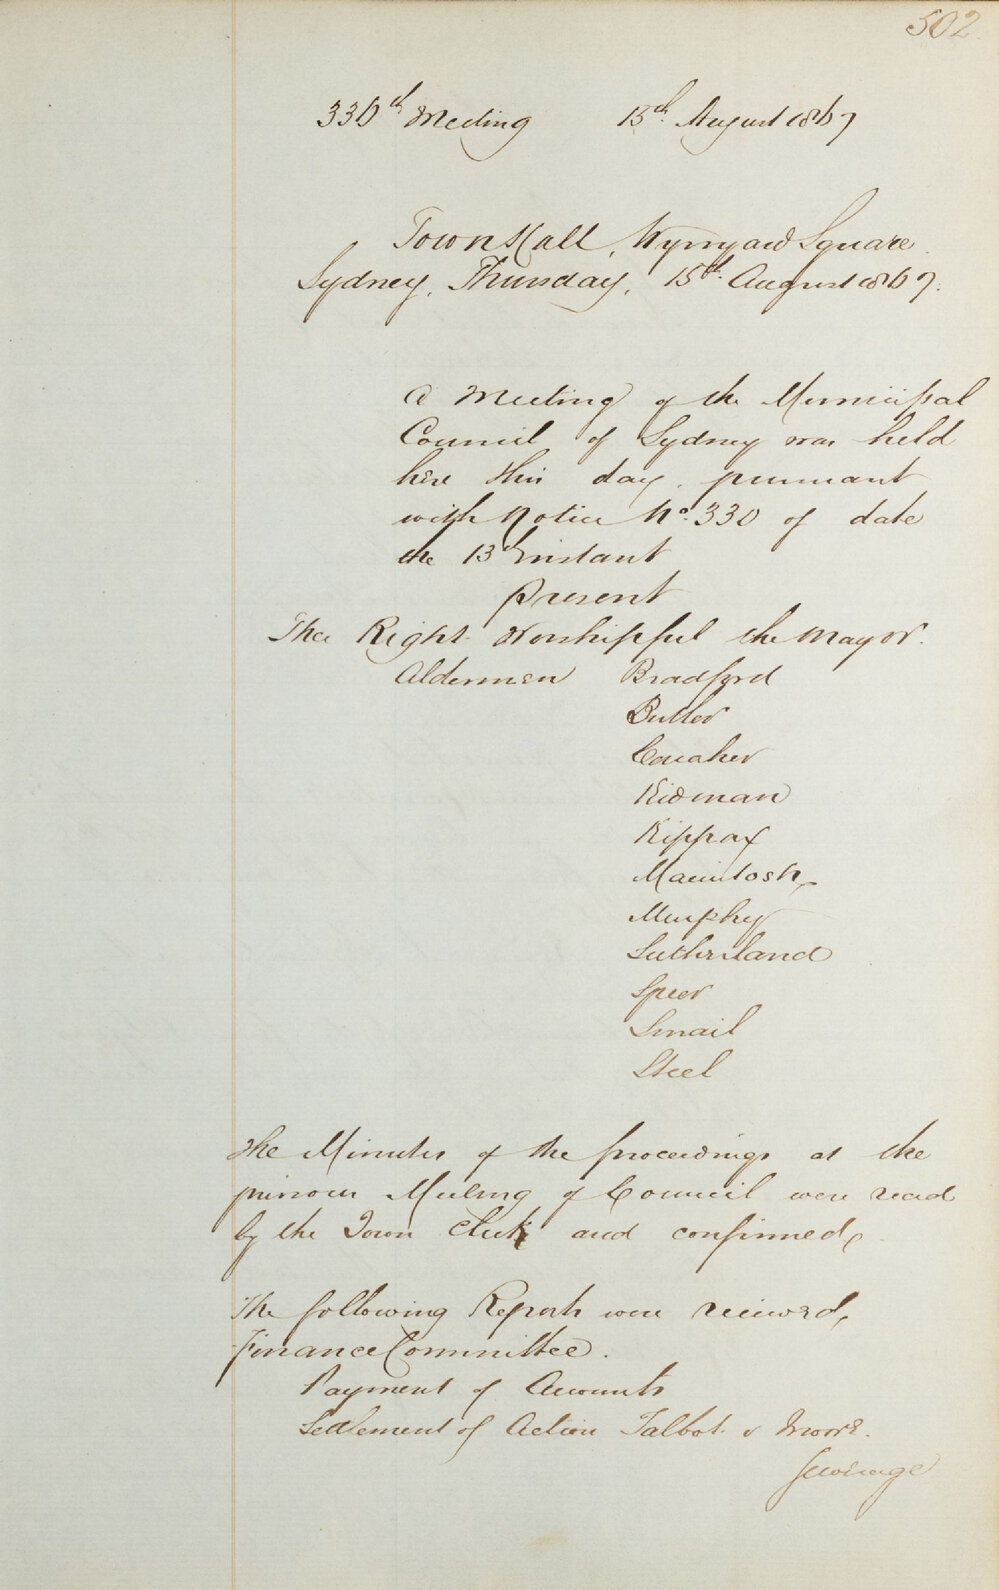 502.
330th Meeting 15th August 1867
Town Hall, Wynyard Square.
Sydney, Thursday, 15th August 1867.
A Meeting of the Municipal
Council of Sydney was held
here this day, pursuant
with Notice No. 330 of date
the 13th instant
Present
The Right Worshipful the Mayor.
Aldermen Bradford
Butler
Caraher
Kidman
Kippax
Macintosh
Murphy
Sutherland
Speer
Smail
Steel
The Minutes of the proceedings at the
previous Meeting of Council were read
by the Town Clerk and confirmed,
The following Reports were received,
Finance Committee.
Payment of Accounts
Settlement of Action Talbot v Moore.
Sewerage